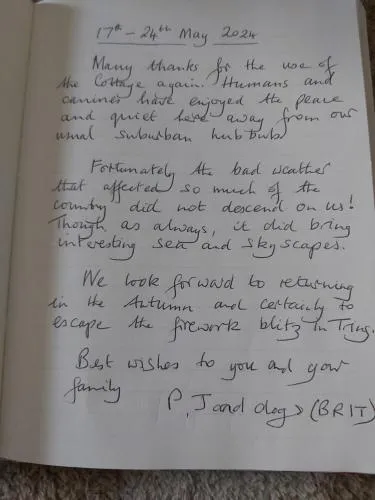 17th - 24th May 2024
Many thanks for the use of
the Cottage again. Humans and
canines have enjoyed the peace
and quiet here away from our
usual suburban hubbub
Fortunately the bad weather
that affected so much of the
country did not descend on us!
Though as always, it did bring
interesting sea and skyscapes.
We look forward to returning
in the Autumn and certainly to
escape the firework blitz in Tring.
Best wishes to you and your
family
P, J and dogs (BRIT)